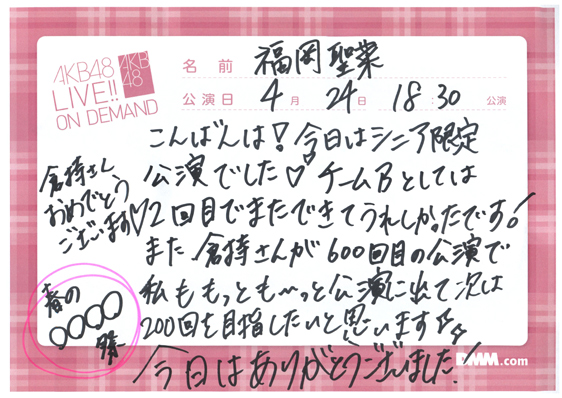 AKB48
LIVE!!
ON DEMAND
AKB
48
名前 福岡聖菜
公演日 4月 24日 18:30 公演
こんばんは!今日はシニア限定
公演でした♡ チームBとしては
2回目でまたできてうれしかったです!
また倉持さんが600回目の公演で
私ももっともーっと公演に出て次は
200回を目指したいと思います
今日はありがとうございました!
倉持さん
おめでとう
ございます♡
春の
○○○○
祭
DMM.com